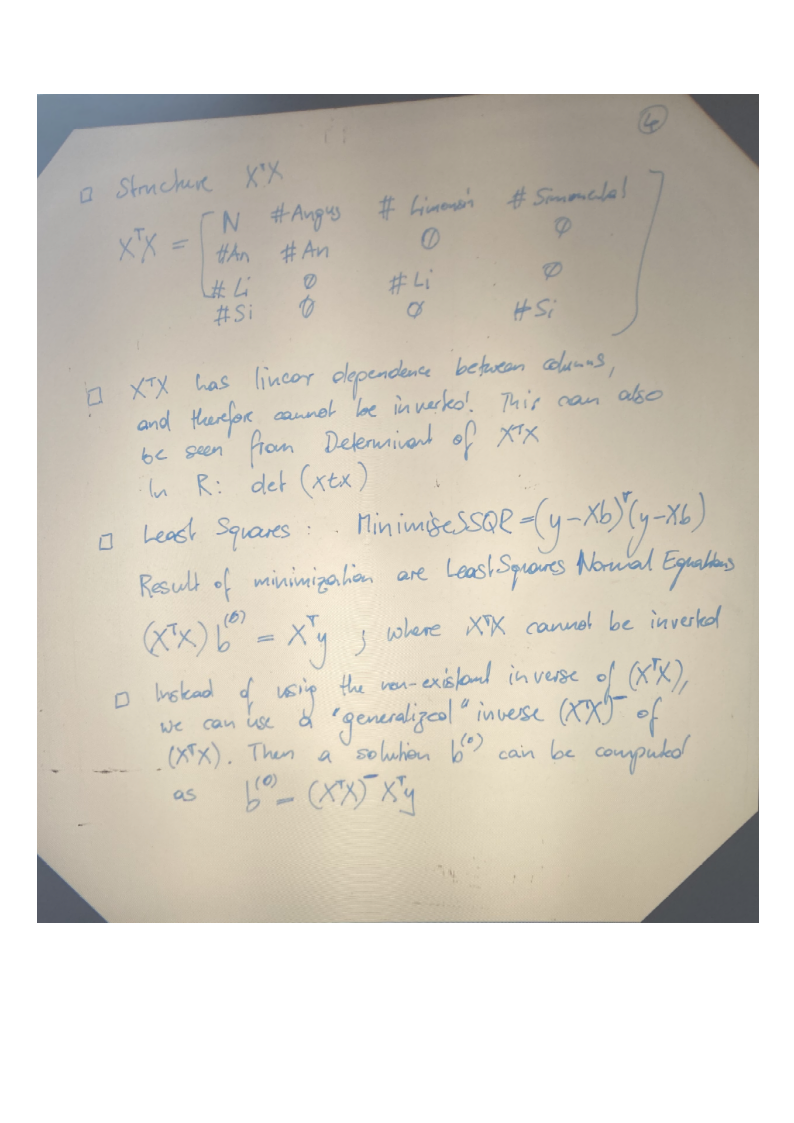 4
□ Structure XᵀX
XᵀX = [ N #Angus # Limousin # Simmental ]
#An #An 0 0
# Li 0 # Li 0
#Si 0 0 #Si
□ XᵀX has linear dependence between columns,
and therefore cannot be inverted! This can also
be seen from Determinant of XᵀX
In R: det (xtx)
□ Least Squares: Minimise SSQR = (y-Xb)ᵀ(y-Xb)
Result of minimization are Least Squares Normal Equations
(XᵀX) b⁽⁰⁾ = Xᵀy ; where XᵀX cannot be inverted
□ Instead of using the non-existant inverse of (XᵀX),
we can use a "generalized" inverse (XᵀX)⁻ of
(XᵀX). Then a solution b⁽⁰⁾ can be computed
as b⁽⁰⁾ = (XᵀX)⁻ Xᵀy